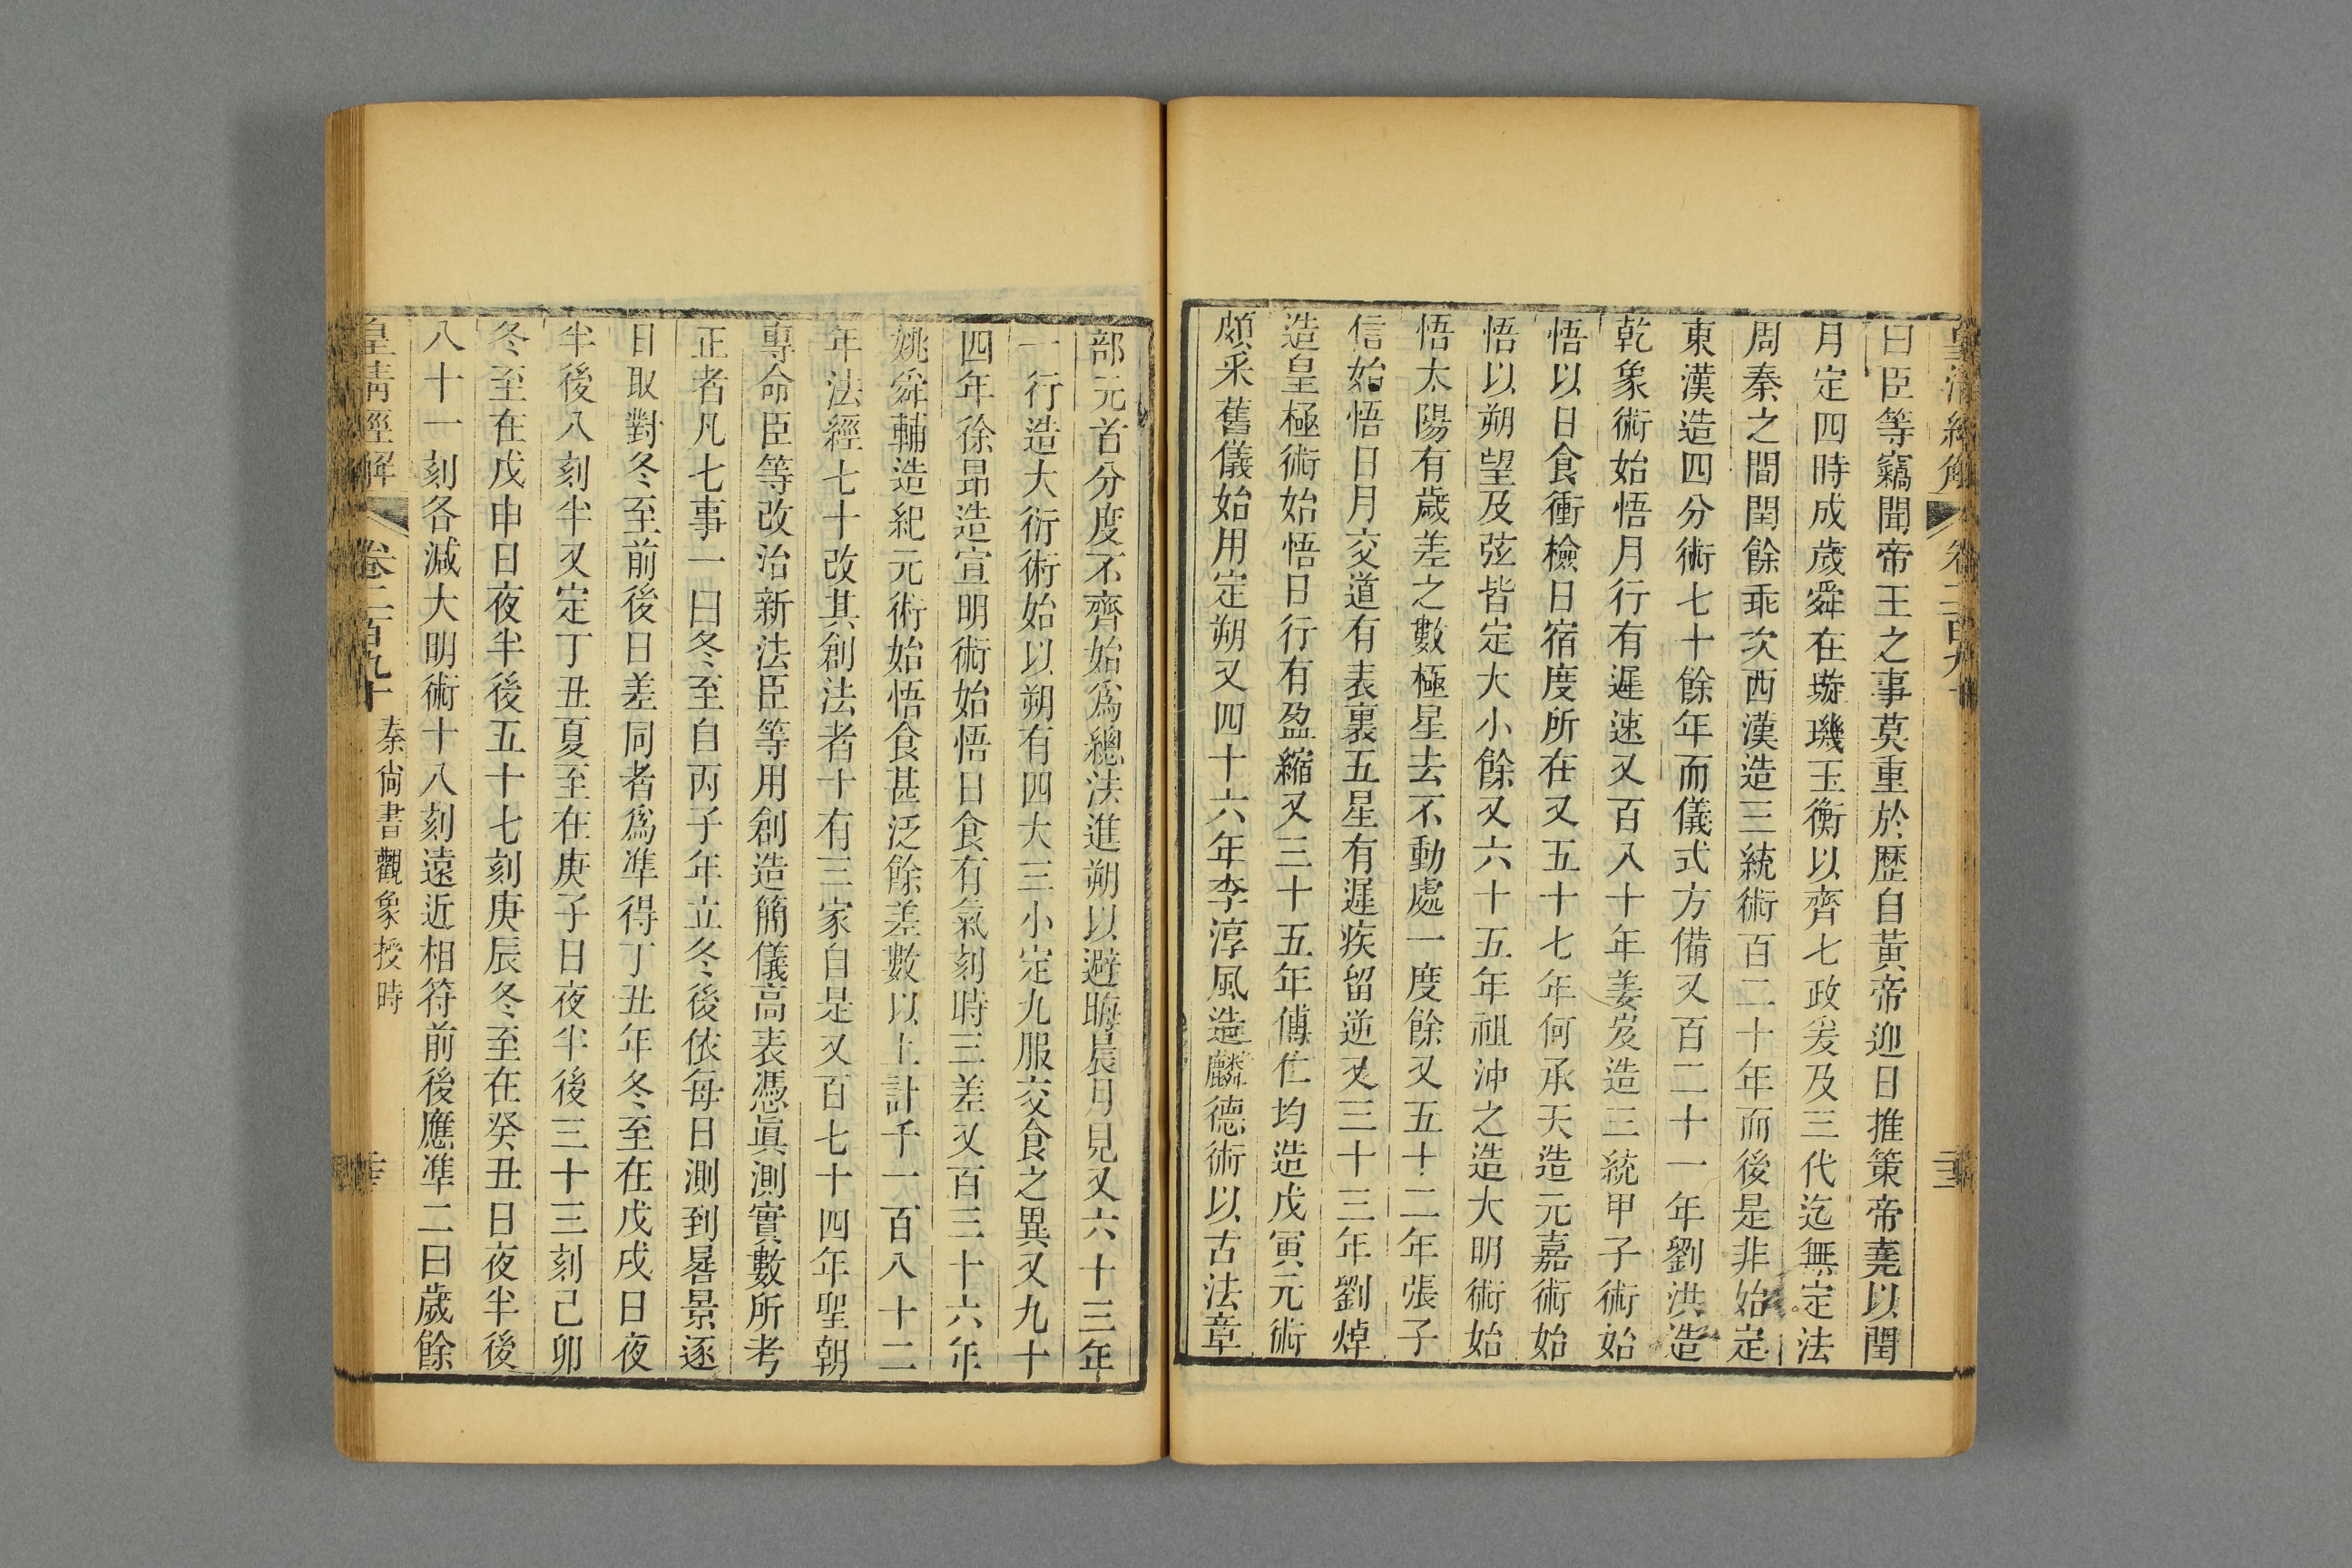 皇清經解 卷二百九十
曰臣等竊聞帝王之事莫重於歴自黃帝迎日推策帝堯以閏
月定四時成歲舜在璇璣玉衡以齊七政爰及三代迄無定法
周秦之間閏餘乖次西漢造三統術百二十年而後是非始定
東漢造四分術七十餘年而儀式方備又百二十一年劉洪造
乾象術始悟月行有遲速又百八十年姜岌造三統甲子術始
悟以日食衝檢日宿度所在又五十七年何承天造元嘉術始
悟以朔望及弦皆定大小餘又六十五年祖沖之造大明術始
悟太陽有歲差之數極星去不動處一度餘又五十二年張子
信始悟日月交道有表裏五星有遲疾留逆又三十三年劉焯
造皇極術始悟日行有盈縮又三十五年傅仁均造戊寅元術
頗采舊儀始用定朔又四十六年李淳風造麟德術以古法章
部元首分度不齊始為總法進朔以避晦晨月見又六十三年
一行造大衍術始以朔有四大三小定九服交食之異又九十
四年徐昻造宣明術始悟日食有氣刻時三差又百三十六年
姚舜輔造紀元術始悟食甚泛餘差數以上計千一百八十二
年法經七十改其創法者十有三家自是又百七十四年聖朝
專命臣等改治新法臣等用創造簡儀高表憑眞測實數所考
正者凡七事一曰冬至自丙子年立冬後依每日測到晷景逐
日取對冬至前後日差同者爲準得丁丑年冬至在戊戌日夜
半後八刻半又定丁丑夏至在庚子日夜半後三十三刻己卯
冬至在戊申日夜半後五十七刻庚辰冬至在癸丑日夜半後
八十一刻各減大明術十八刻遠近相符前後應準二曰歲餘
皇清經解 卷二百九十 秦尙書觀象授時